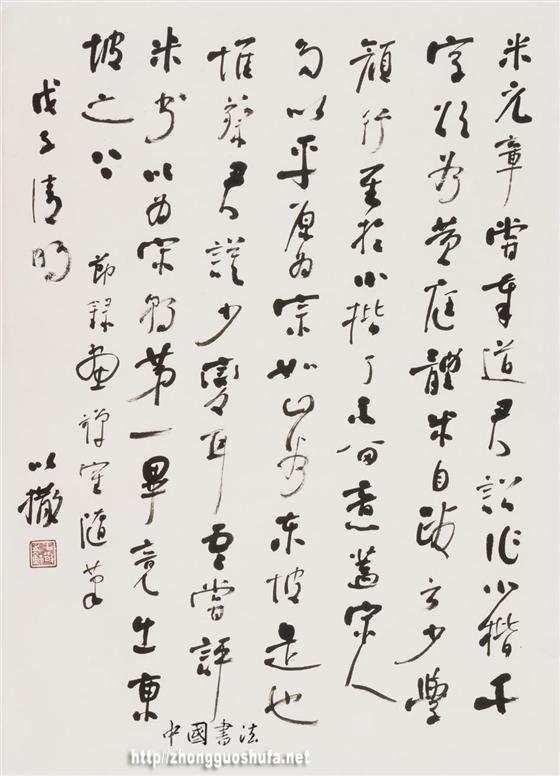 米元章嘗奉道君詔作小楷千
字欲為黃庭體米自跋云少學
顏行至於小楷了不留意蓋宋人
多以平原為宗如山谷东坡是也
惟蔡君謨少變耳吾嘗評
米書以為宋朝第一畢竟出東
坡之上
節録畫禪室隨筆
戊子清明
以撒
中國書法
http://zhongguoshufa.net